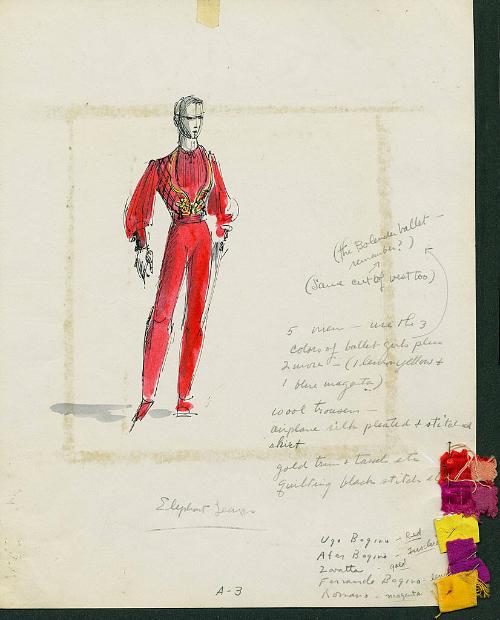 (the Bolender ballet -
remember?)
(Same cut of vest too)
5 men - use the 3
colors of ballet girls plus
2 more - (1 lemon yellow +
1 blue magenta)
wool trousers -
airplane silk pleated + stitched
shirt
gold trim + tassels etc
quilting black stitch
Elephant
Ugo Bogino - Red
Ater Bogino -
Zoratta - gold
Fernando Bogino -
Romano - magenta
A-3